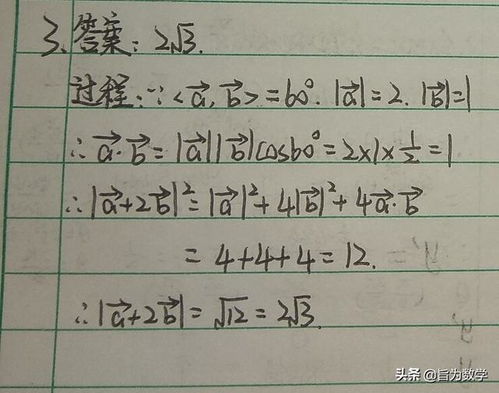 3. 答案: 2√3.
过程: ∵<a⃗, b⃗>=60°. |a⃗|=2. |b⃗|=1
∴a⃗·b⃗=|a⃗||b⃗|cos60°=2×1×1/2=1
∴|a⃗+2b⃗|²=|a⃗|²+4|b⃗|²+4a⃗·b⃗
=4+4+4=12.
∴|a⃗+2b⃗|=√12=2√3.
头条 @旨为数学